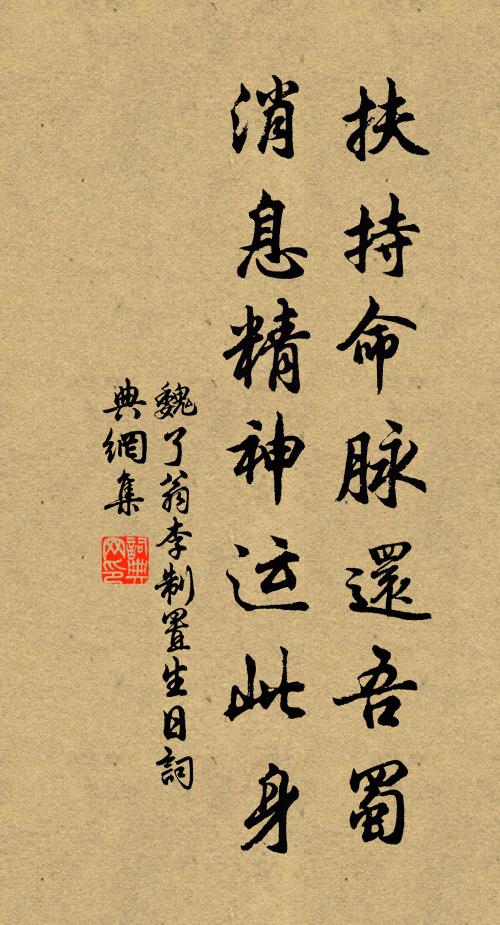 扶持命脉還吾蜀
消息精神运此身
魏了翁李制置生日詞
典網集
詞典
网印